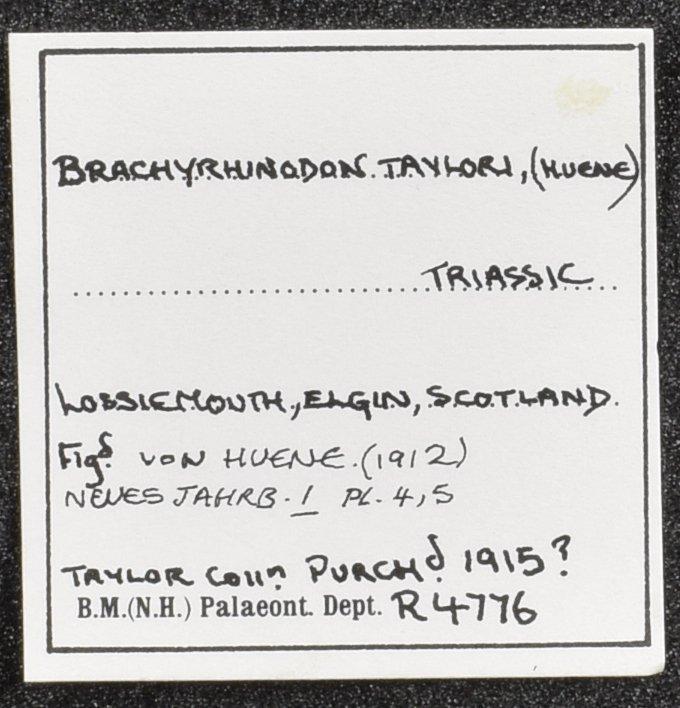 BRACHYRHINODON TAYLORI, (HUENE)
TRIASSIC
LOSSIEMOUTH, ELGIN, SCOTLAND.
Figd. VON HUENE. (1912)
NEUES JAHRB. 1 PL. 4, 5
TAYLOR Colln PURCHd. 1915?
B.M.(N.H.) Palaeont. Dept. R4776